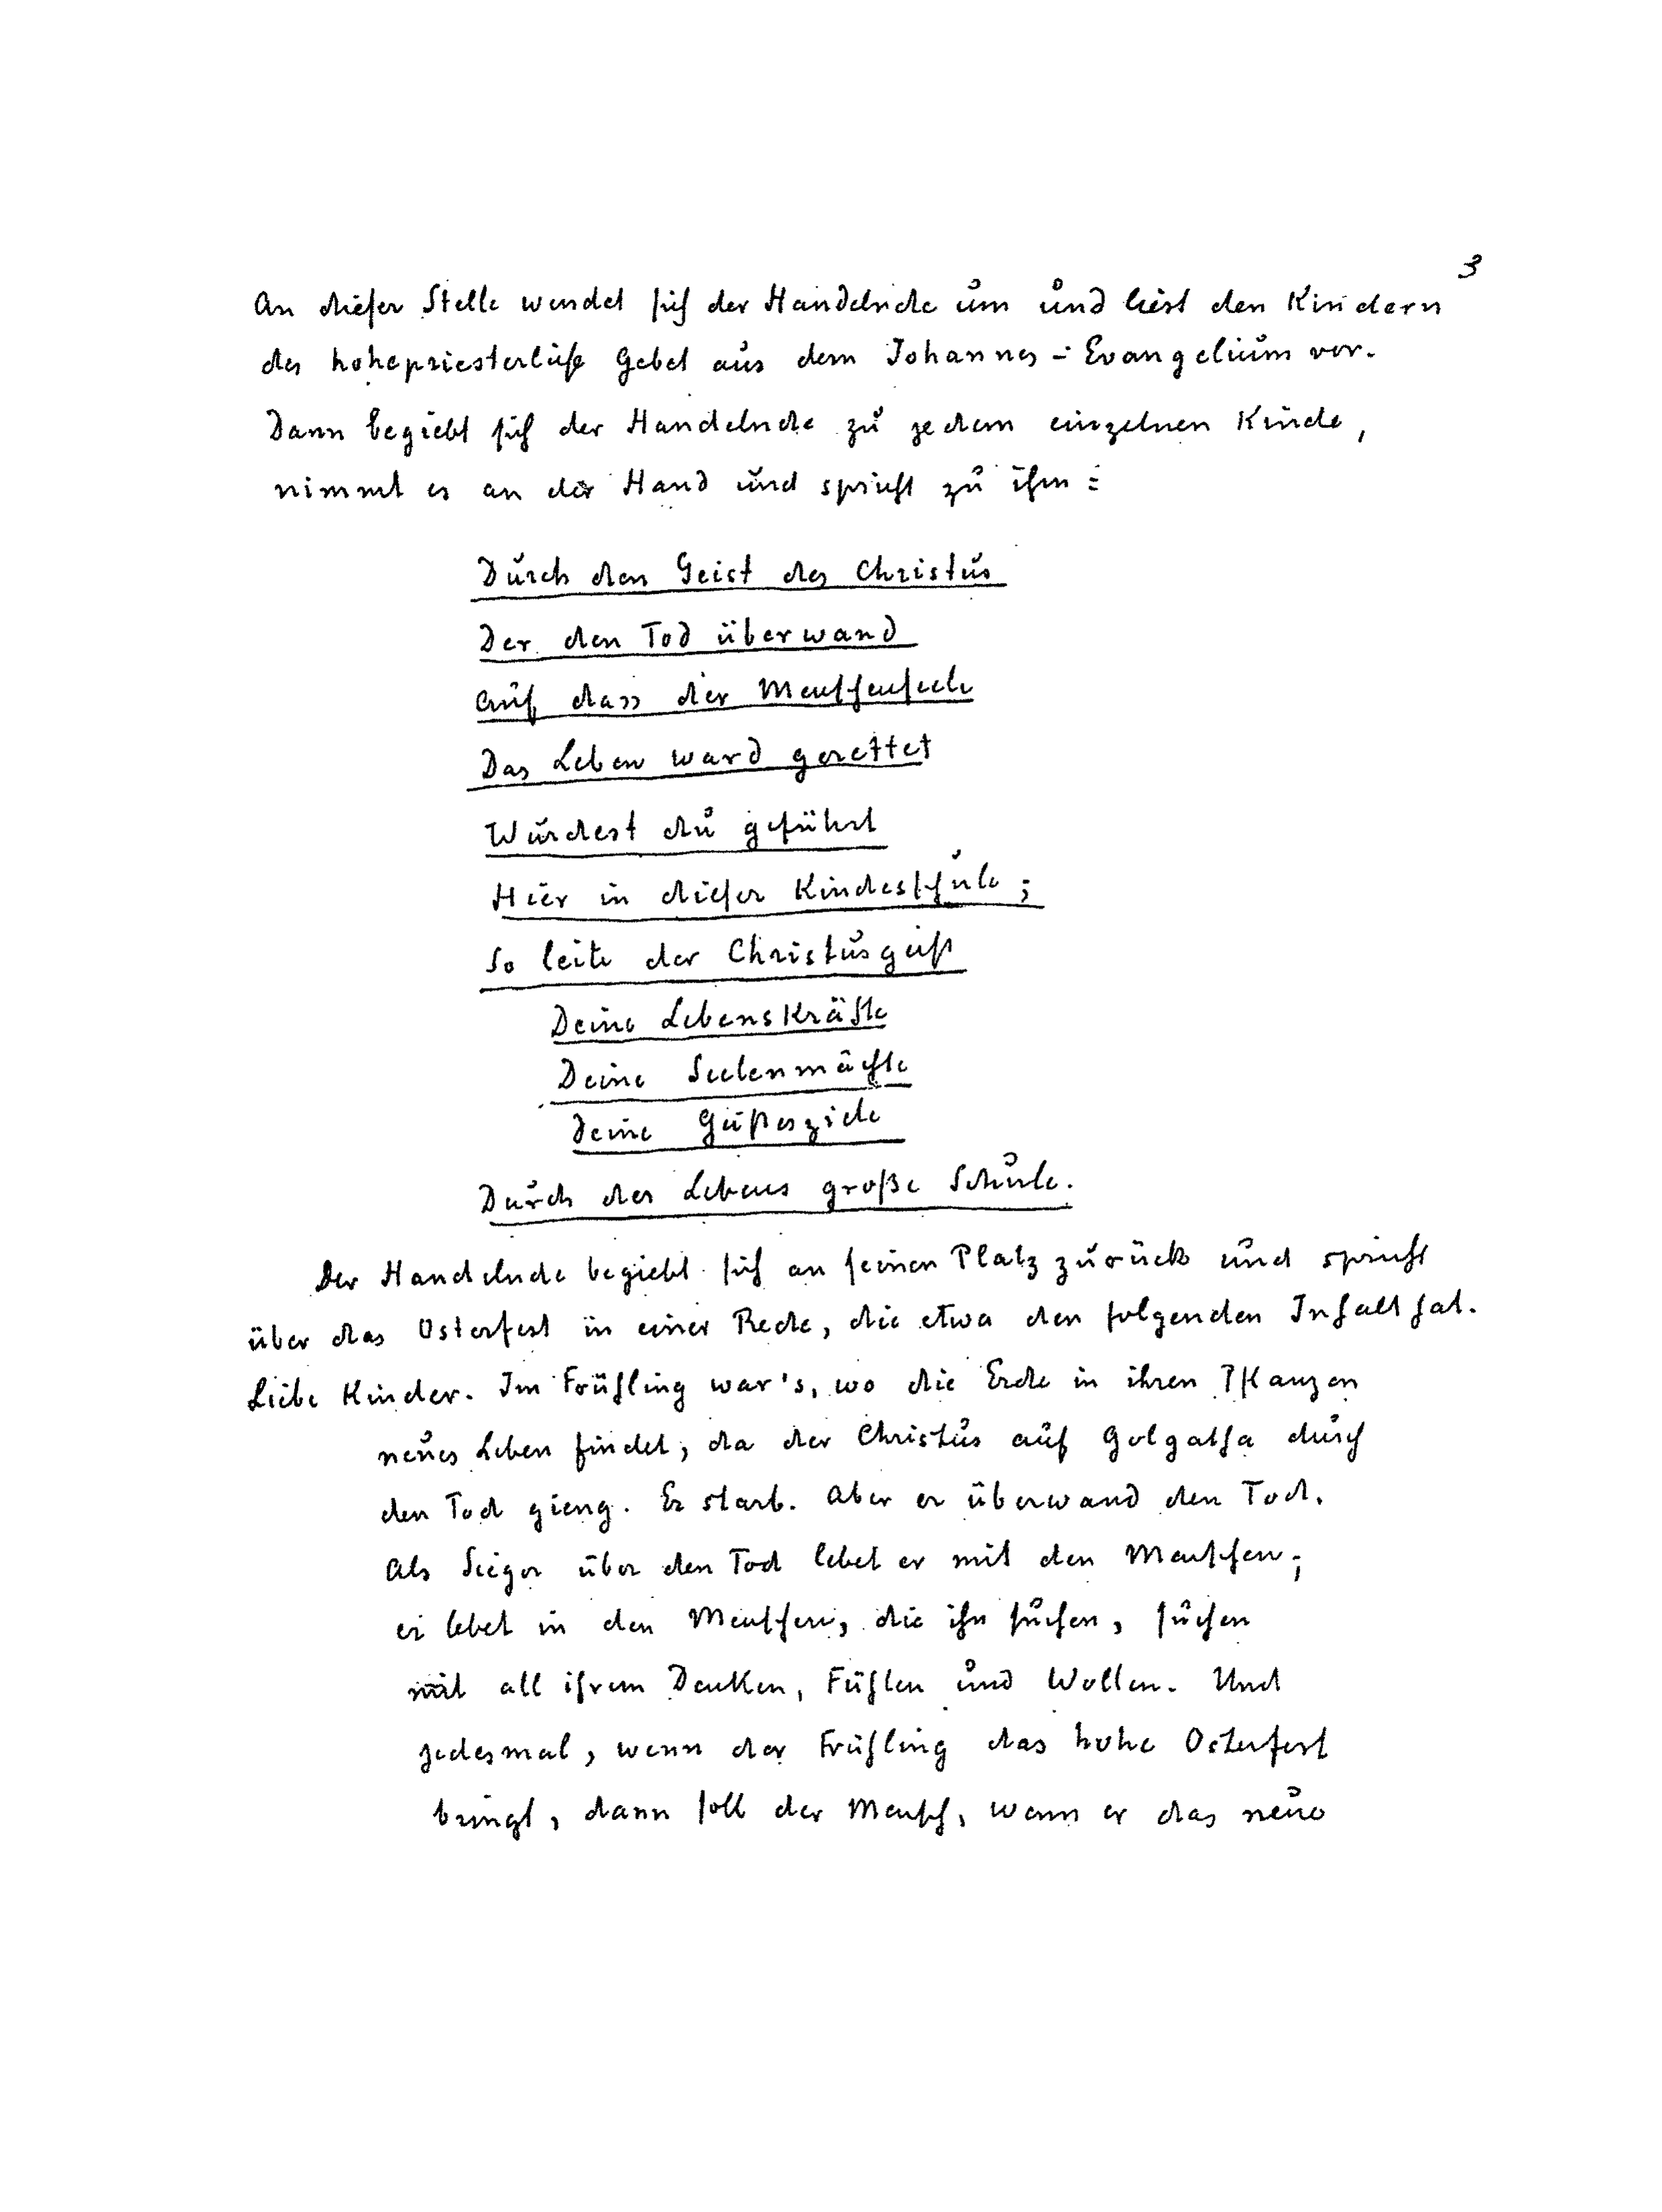 3
An dieser Stelle wendet sich der Handelnde um und liest den Kindern
des hohepriesterliche Gebet aus dem Johannes-Evangelium vor.
Dann begiebt sich der Handelnde zu jedem einzelnen Kinde,
nimmt es an der Hand und spricht zu ihm:
Durch den Geist des Christus
Der den Tod überwand
Auf dass der Menschenseele
Das Leben ward gerettet
Wurdest du geführt
Hier in dieser Kindesschule;
So leite der Christusgeist
Deine Lebenskräfte
Deine Seelenmächte
Deine Geistesziele
Durch des Lebens große Schule.
Der Handelnde begiebt sich an seinen Platz zurück und spricht
über das Osterfest in einer Rede, die etwa den folgenden Inhalt hat.
Liebe Kinder. Im Frühling war's, wo die Erde in ihren Pflanzen
neues Leben findet, da der Christus auf Golgatha durch
den Tod gieng. Er starb. Aber er überwand den Tod.
Als Sieger über den Tod lebet er mit den Menschen;
er lebet in den Menschen, die ihn suchen, suchen
mit all ihrem Denken, Fühlen und Wollen. Und
jedesmal, wenn der Frühling das hohe Osterfest
bringt, dann soll der Mensch, wenn er das neue